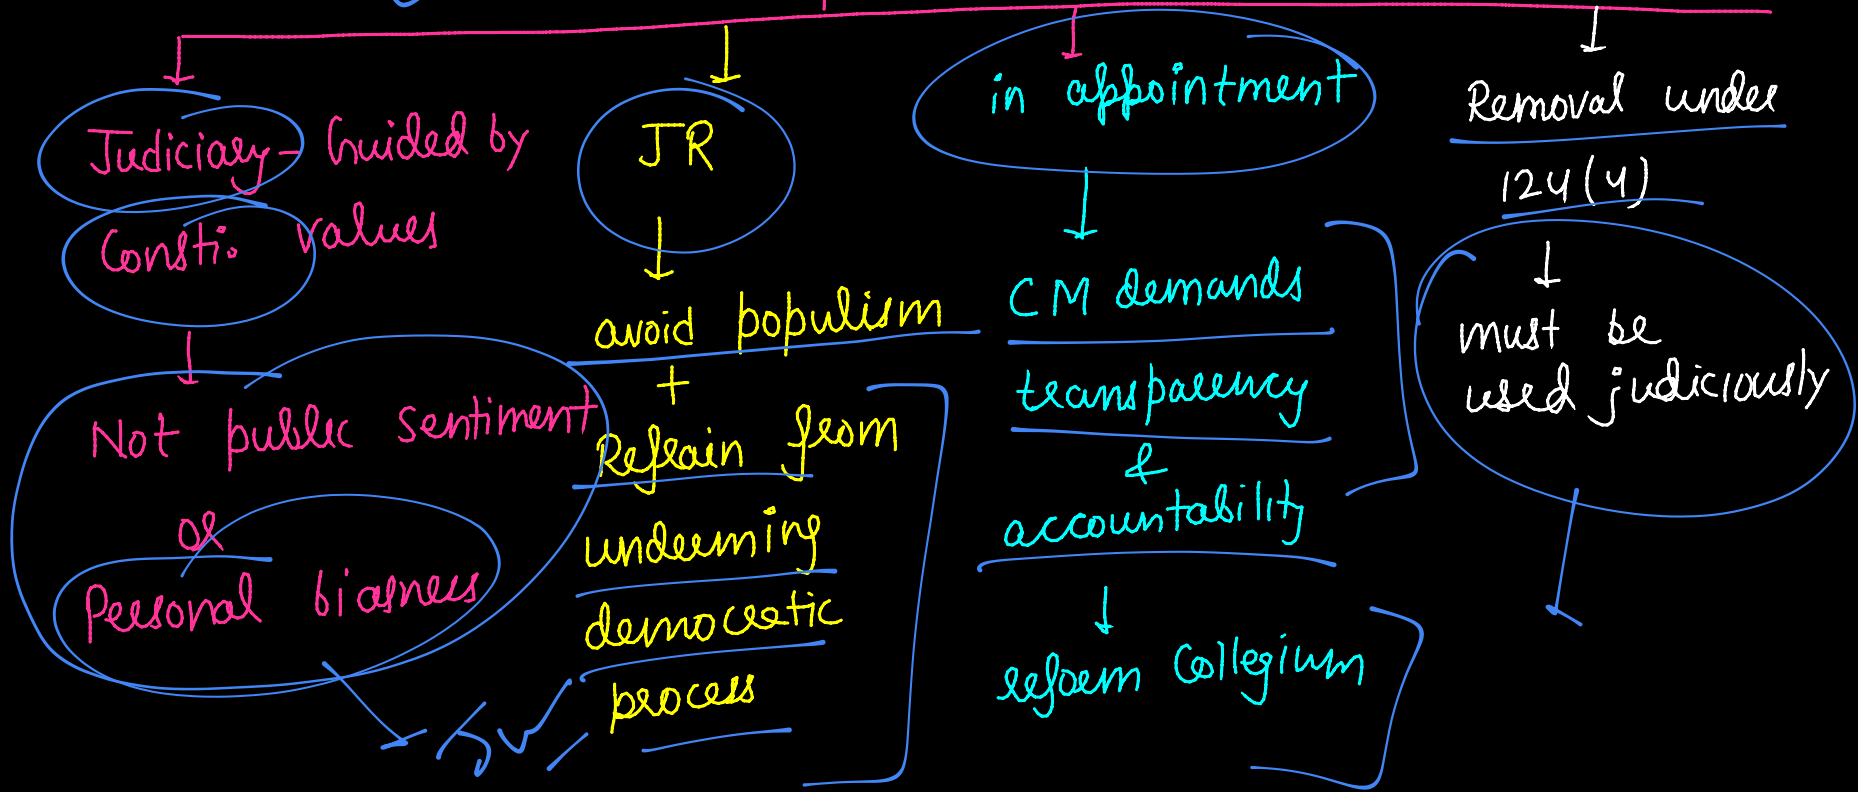 Judiciary - Guided by
Consti. values
Not public sentiment
or
Personal biasness
JR
avoid populism
+
Refrain from
underming
democratic
process
in appointment
CM demands
transparency
&
accountability
reform Collegium
Removal under
124(4)
must be
used judiciously